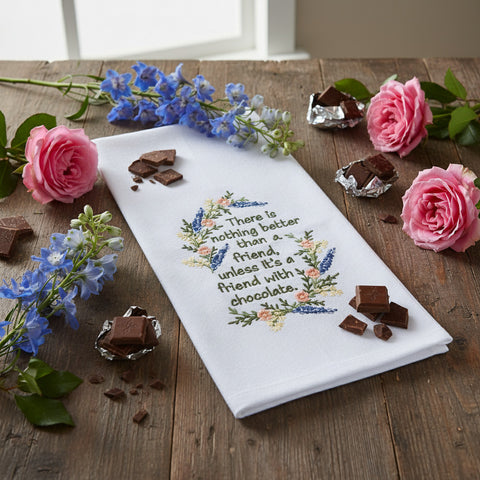 There is
nothing better
than a
friend,
unless it's a
friend with
chocolate.